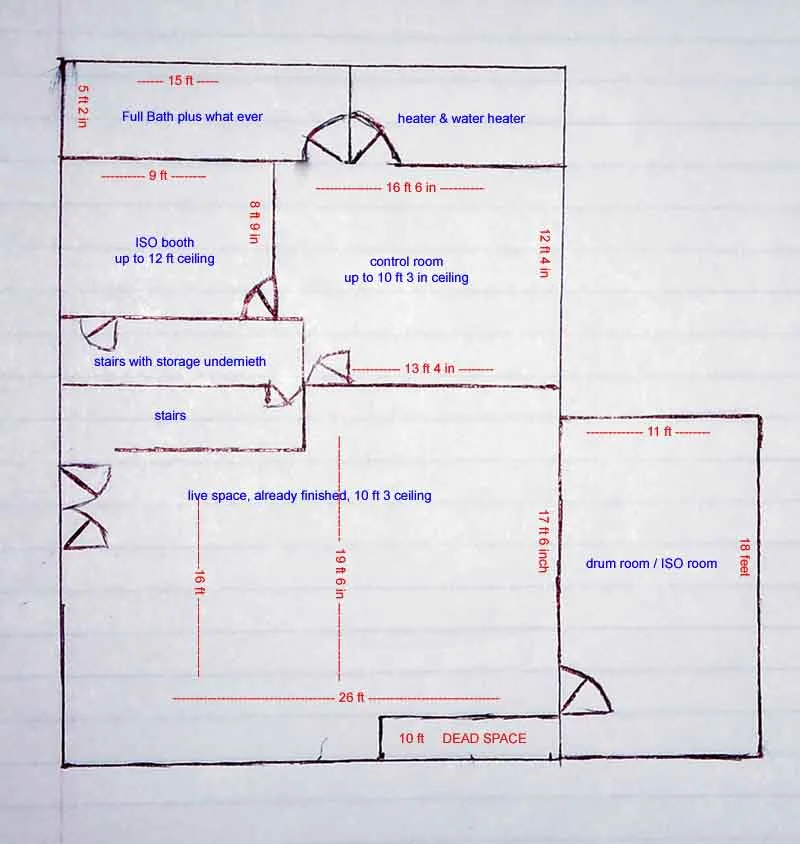 15 ft
5 ft 2 in
Full Bath plus what ever
heater & water heater
9 ft
16 ft 6 in
8 ft 9 in
ISO booth
up to 12 ft ceiling
12 ft 4 in
control room
up to 10 ft 3 in ceiling
stairs with storage undernieth
13 ft 4 in
stairs
11 ft
live space, already finished, 10 ft 3 ceiling
17 ft 6 inch
18 feet
drum room / ISO room
16 ft
19 ft 6 in
26 ft
10 ft DEAD SPACE